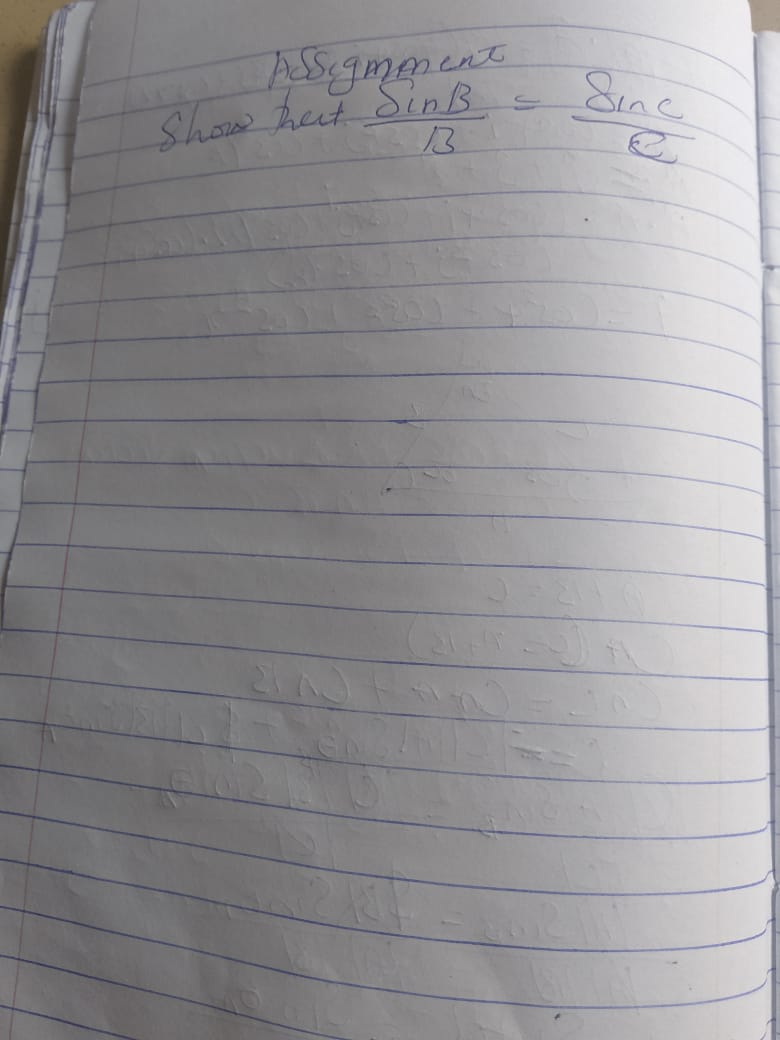 Assignment
Show that SinB/B = SinC/C